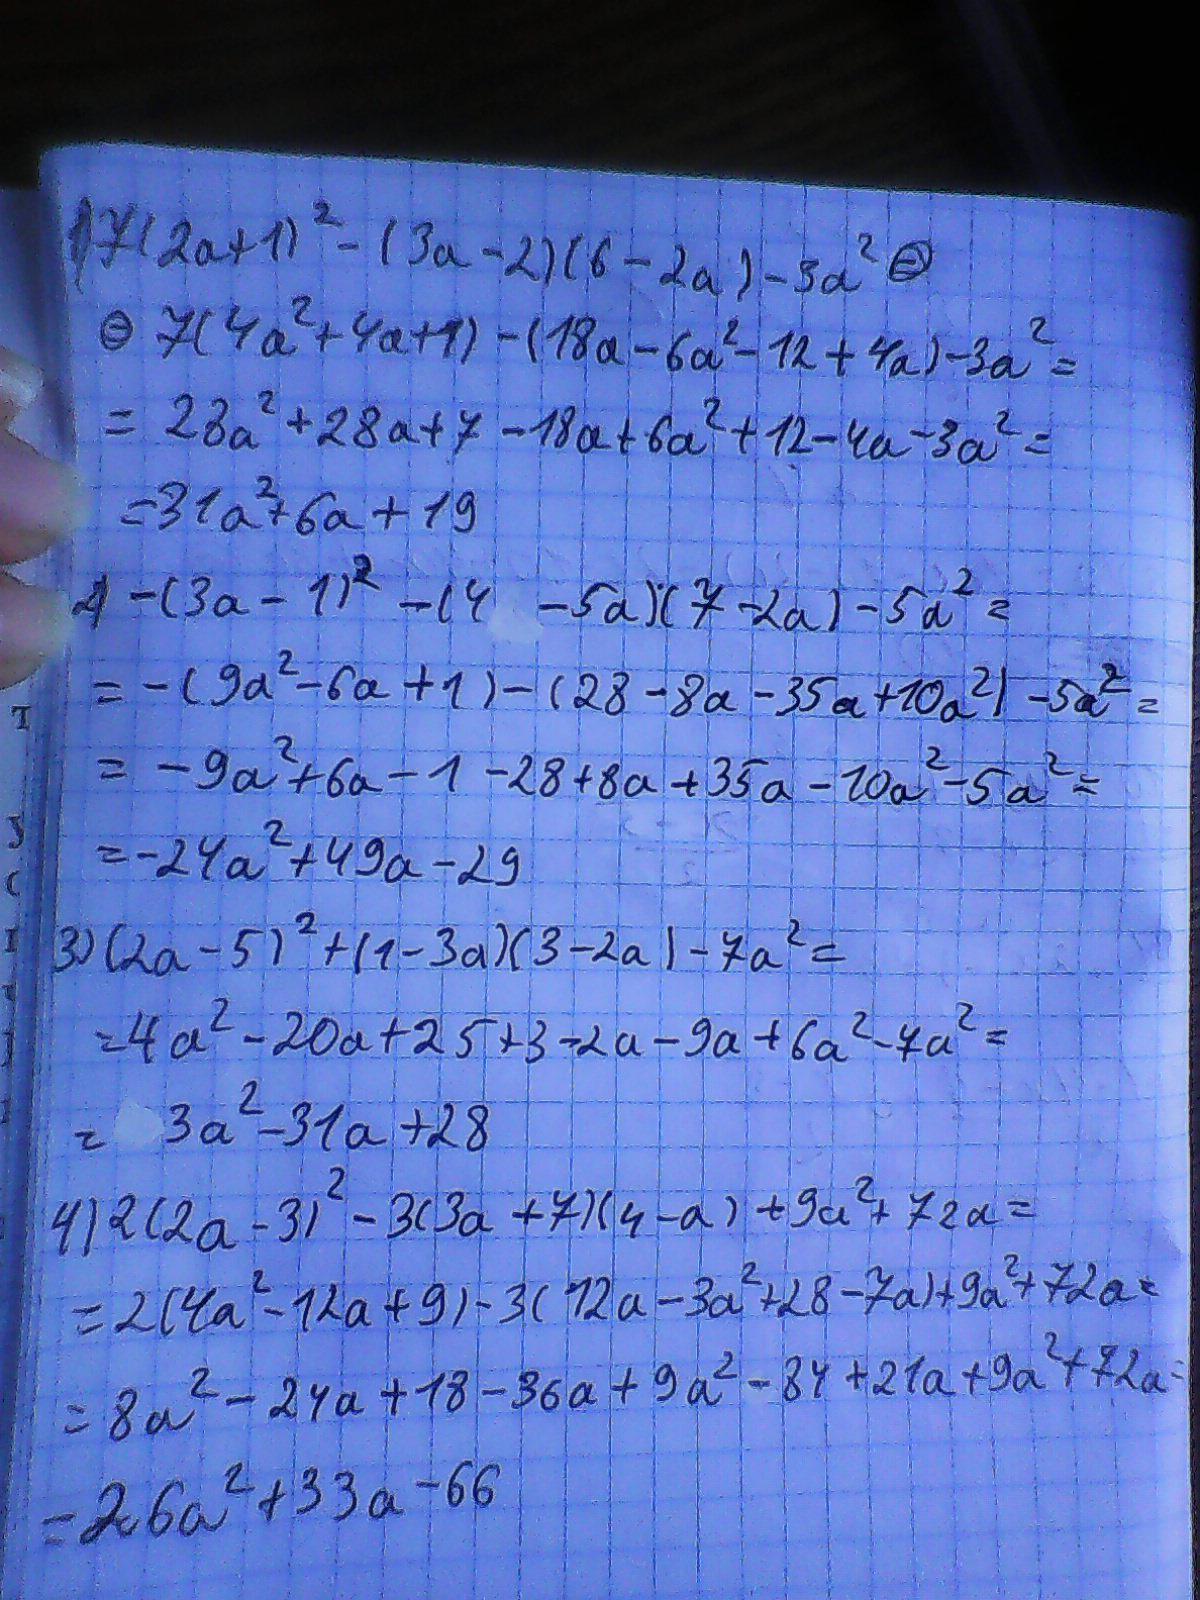 1) 7(2a+1)² - (3a-2)(6-2a) - 3a² ⊜
⊜ 7(4a²+4a+1) - (18a-6a²-12+4a) - 3a² =
= 28a²+28a+7-18a+6a²+12-4a-3a² =
= 31a²+6a+19
2) -(3a-1)² - (4 -5a)(7-2a) - 5a² =
= -(9a²-6a+1) - (28-8a-35a+10a²) - 5a² =
= -9a²+6a-1-28+8a+35a-10a²-5a² =
= -24a²+49a-29
3) (2a-5)² + (1-3a)(3-2a) - 7a² =
= 4a²-20a+25+3-2a-9a+6a²-7a² =
= 3a²-31a+28
4) 2(2a-3)² - 3(3a+7)(4-a) + 9a² + 72a =
= 2(4a²-12a+9) - 3(12a-3a²+28-7a) + 9a² + 72a =
= 8a²-24a+18-36a+9a²-84+21a+9a²+72a =
= 26a²+33a-66